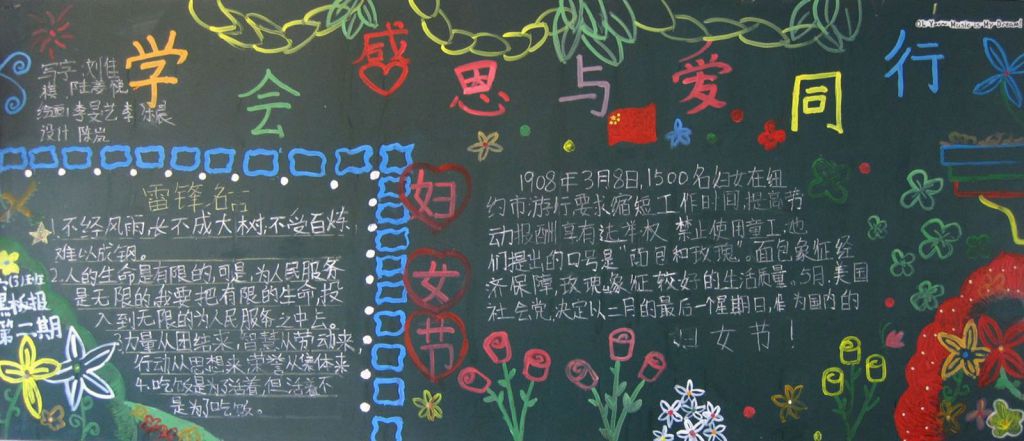 Oh Yeah Music is My Dream!
学会感思与爱同行
写字:刘佳
设计 陈岚
雷锋名言
1.不经风雨,长不成大树,不受百炼
难以成钢。
2.人的生命是有限的,可是,为人民服务
是无限的,我要把有限的生命,投
入到无限的为人民服务之中去。
力量从团结来,智慧从劳动来,
行动从思想来,荣誉从集体来
4.吃饭是为了活着,但活着不
是为了吃饭。
黑板报
第一期
妇
女
节
1908年3月8日,1500名妇女在纽
约市,游行要求缩短工作时间,提高劳
动报酬,享有选举权,禁止使用童工,她
们提出的口号是“面包和玫瑰”。面包象征经
济保障,玫瑰象征较好的生活质量。5月,美国
社会党,决定以二月的最后一个星期日,作为国内的
妇女节!